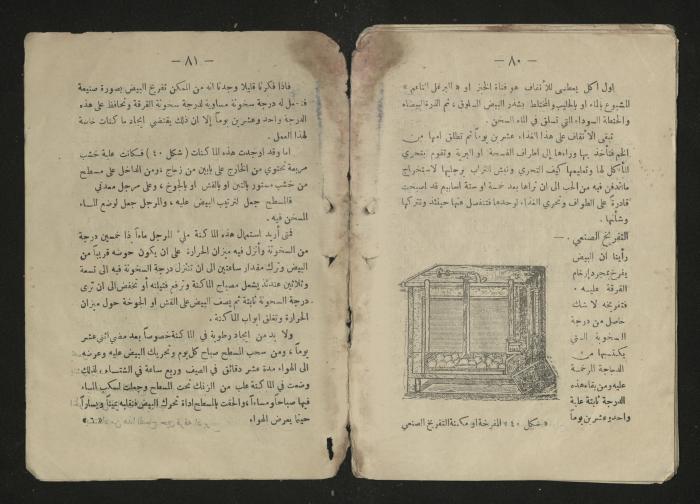 — ٨٠ —
اول اكل يعطى للأنقاف هو فتاة الخبز او « البرغل الناعم »
المشبوع بالماء او بالحليب والمختلط بشذر البيض المسلوق ، ثم الذرة البيضاء
والحنطة السوداء التي تسلق في الماء السخن .
تبقى الأنقاف على هذا الغذاء عشرين يوماً ثم تطلق امها من
الخم فتأخذ بها وراءها إلى اطراف الفسحة او البرية وتقوم بتحري
المأكل لها وتعليمها كيف التحري ونبش التراب برجليها لاستخراج
ما اندفن فيه من الحب الى ان تراها بعد خمسة او ستة اسابيع قد اصبحت
قادرة على الطواف وتحري الغذاء لوحدها فتنفصل عنها حينئذ وتتركها
وشأنها .
التفريخ الصنعي . —
رأينا ان البيض
يفرخ بمجرد ارخام
القرقة عليه .
فتفريخه لا شك
حاصل من درجة
السخونة التي
يكتسبها من
الدجاجة المرخمة
عليه ومن بقاء هذه
الدرجة ثابتة غاية
واحد وعشرين يوماً
« شكل ٤٠ » المفرخة او مكينة التفريخ الصنعي
— ٨١ —
فاذا فكرنا قليلا وجدنا انه من الممكن تفريخ البيض بصورة صنيعة
له درجة سخونة مساوية لدرجة سخونة القرقة ونحافظ على هذه
الدرجة واحد وعشرين يوماً إلا ان ذلك يقتضي ايجاد ماكنات خاصة
لهذا العمل .
اما وقد اوجدت هذه الماكنات ( شكل ٤٠ ) فكانت علبة خشب
مربعة تحتوي من الخارج على بابين من زجاج ، ومن الداخل على مسطح
من خشب مستور بالتبن او بالقش او بالجوخ ، وعلى مرجل معدني
فالمسطح جعل لترتيب البيض عليه ، والمرجل جعل لوضع الماء
السخن فيه .
فمتى أريد استعمال هذه الماكنة ملئ المرجل ماءاً ذا خمسين درجة
من السخونة وأنزل فيه ميزان الحرارة على ان يكون حوضه قريباً من
البيض وترك مقدار ساعتين الى ان تتنزل درجة السخونة فيه الى تسعة
وثلاثين عندئذ يشعل مصباح الماكنة وترفع فتيلته أو تخفض الى ان ترى
درجة السخونة ثابتة ثم يصف البيض على القش او الجوخة حول ميزان
الحرارة وتغلق ابواب الماكنة .
ولا بد من ايجاد رطوبة في الماكنة خصوصاً بعد مضي اثني عشر
يوماً ، ومن سحب المسطح صباح كل يوم وتحريك البيض عليه وعرضه
الى الهواء مدة عشر دقائق في الصيف وربع ساعة في الشتاء ، لذلك
وضعت في الماكنة علب من الزنك تحت المسطح وجعلت لسكب الماء
فيها صباحاً ومساءاً ، والحقت بالمسطح اداة تحرك البيض فتقلبه يميناً ويساراً
حينما يعرض الهواء